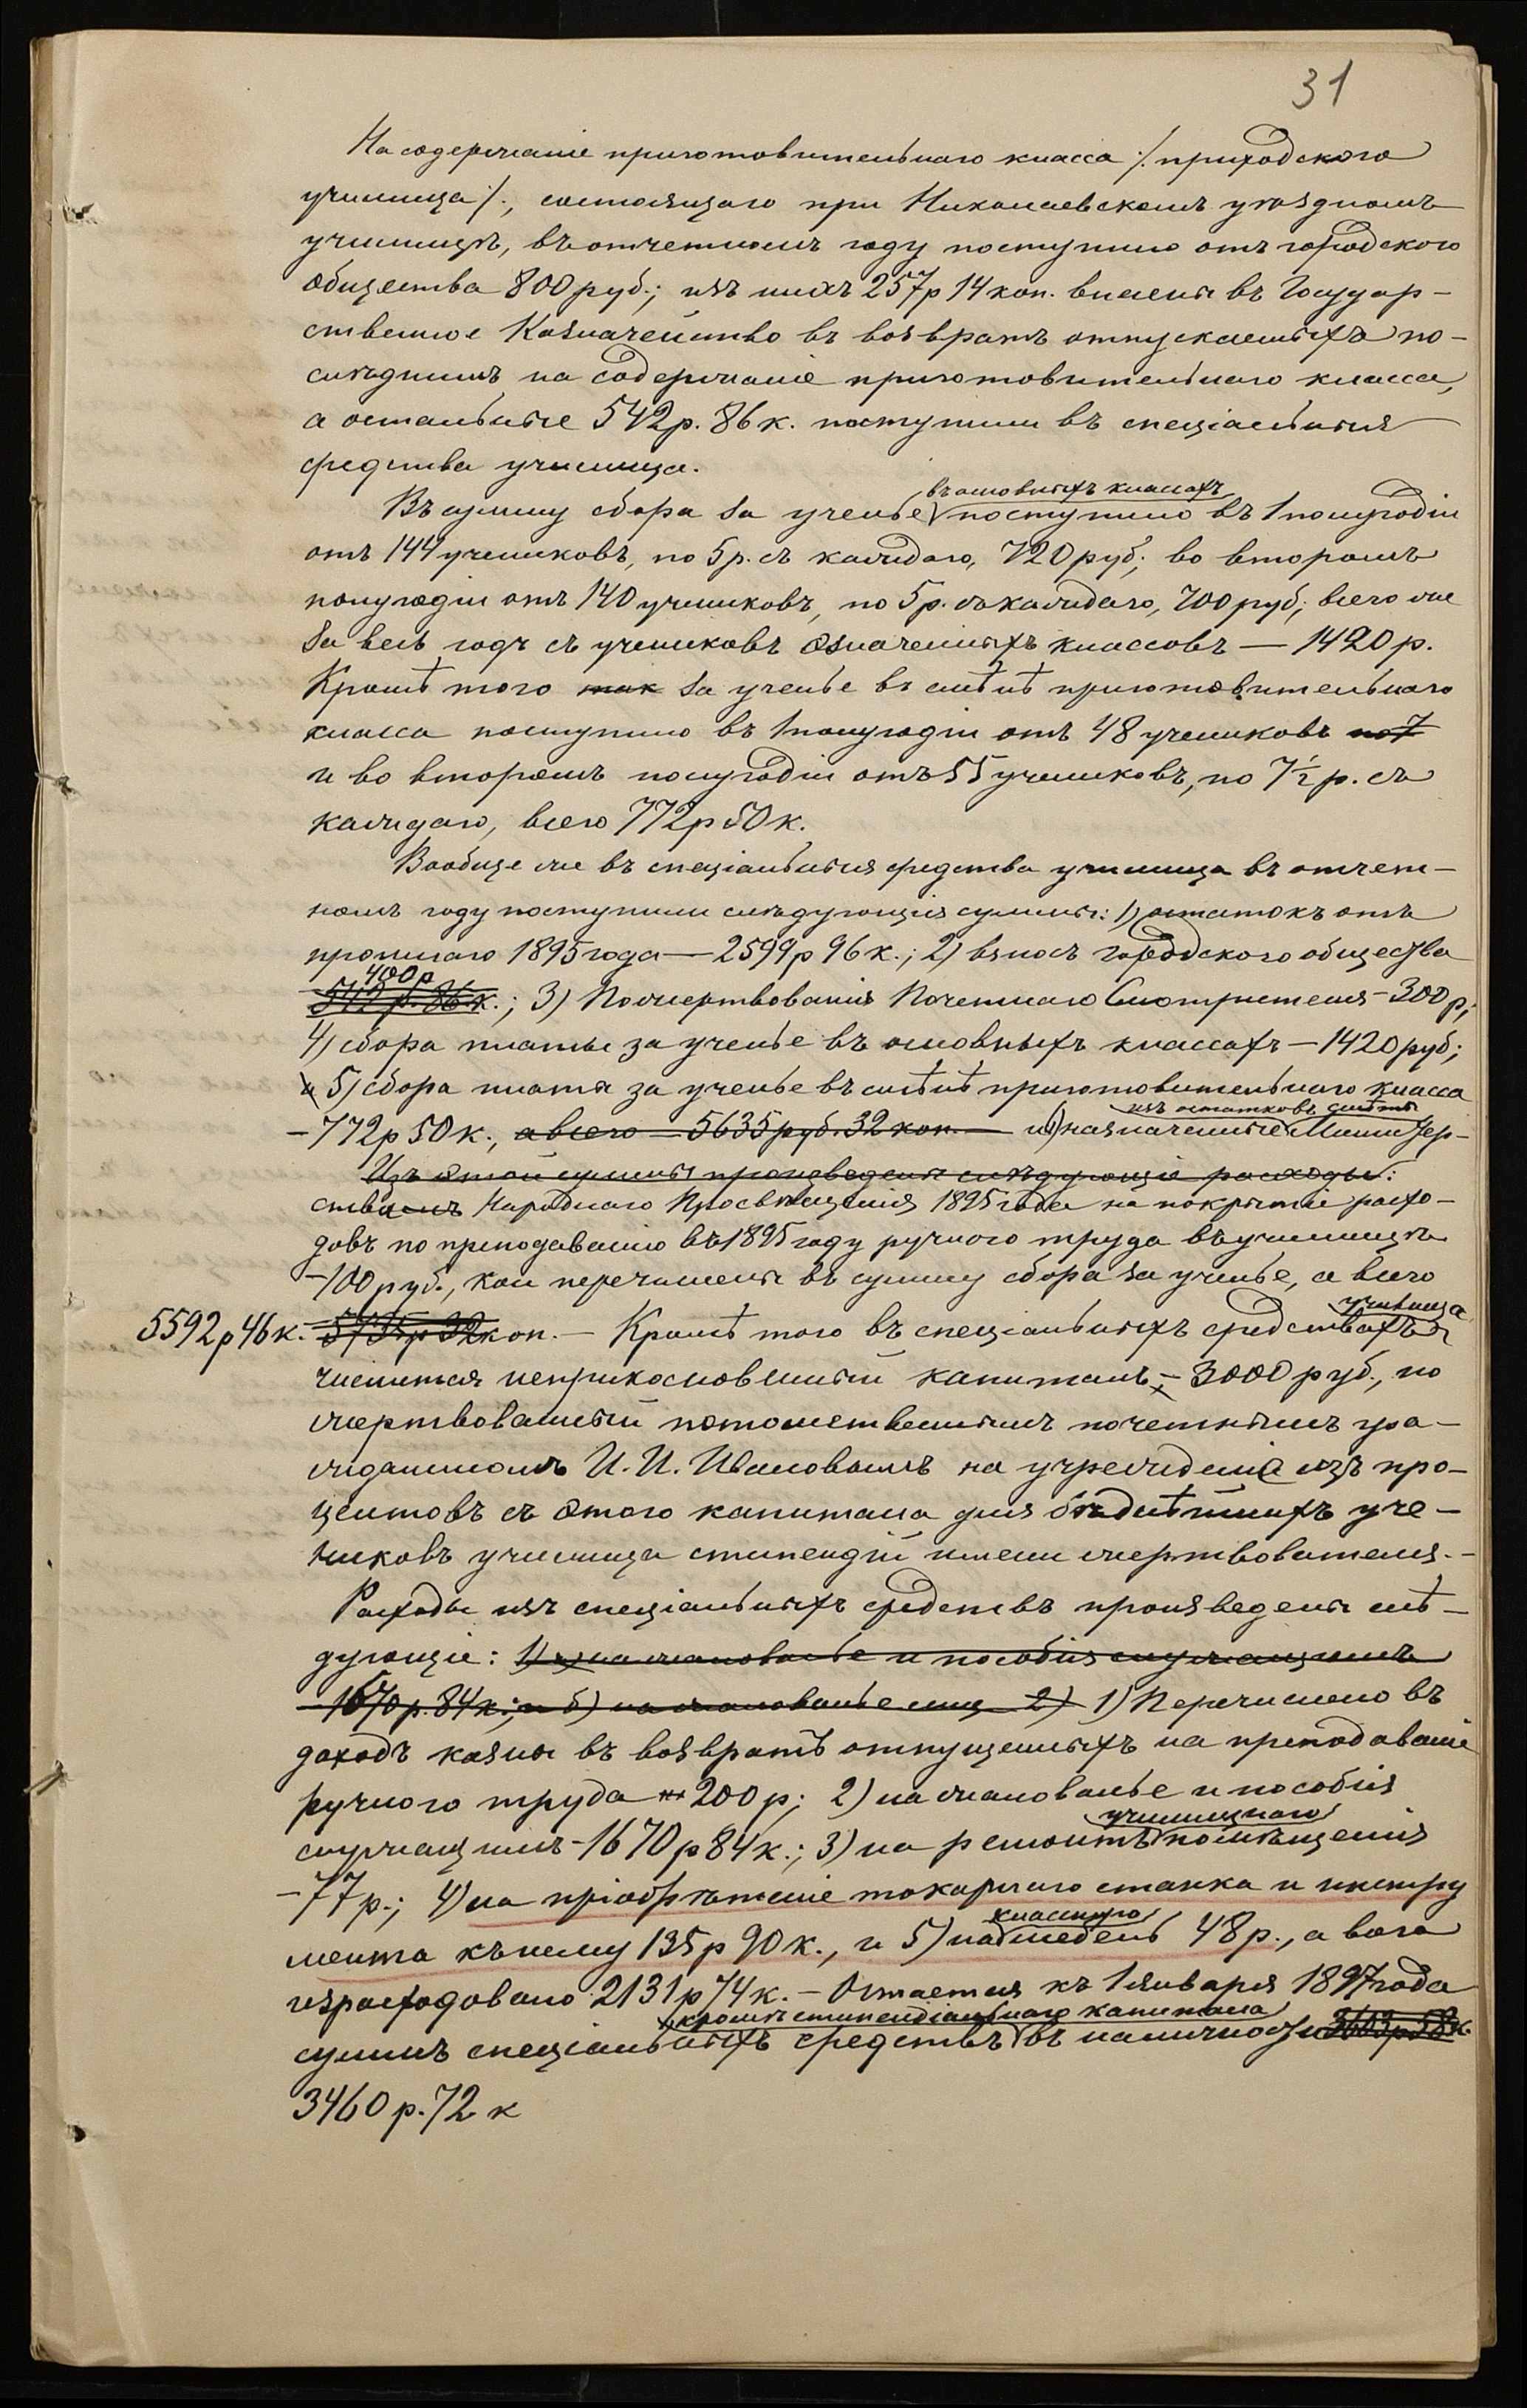 31
На содержаніе приготовительнаго класса /: приходского
училища :/, состоящаго при Николаевскомъ уѣздномъ
училищѣ, въ отчетномъ году поступило отъ городского
общества 800 руб.; изъ нихъ 257 р 14 коп. внесены въ Государ-
ственное Казначейство въ возвратъ отпускаемыхъ по-
слѣднимъ на содержаніе приготовительнаго класса,
а остальные 542 р. 86 к. поступили въ спеціальныя
средства училища.
въ основныхъ классахъ
Въ сумму сбора за ученье поступило въ 1 полугодіи
отъ 144 учениковъ, по 5 р. съ каждаго, 720 руб.; во второмъ
полугодіи отъ 140 учениковъ, по 5 р. съ каждаго, 700 руб.; всего же
за весь годъ съ учениковъ означенныхъ классовъ — 1420 р.
Кромѣ того так за ученье въ смѣнѣ приготовительнаго
класса поступило въ 1 полугодіи отъ 48 учениковъ по 7
и во второмъ полугодіи отъ 55 учениковъ, по 7½ р. съ
каждаго, всего 772 р 50 к.
Вообще же въ спеціальныя средства училища въ отчет-
номъ году поступили слѣдующія суммы: 1) остатокъ отъ
прошлаго 1895 года — 2599 р 96 к.; 2) взносъ городского общества
400 р
542 р. 86 к.; 3) Пожертвованія Почетнаго Смотрителя - 300 р;
4) сбора платы за ученье въ основныхъ классахъ — 1420 руб;
и 5) сбора платы за ученье въ смѣнѣ приготовительнаго класса
изъ остатковъ смѣты
- 772 р 50 к., а всего — 5635 руб. 32 коп. — и 6) назначенные Министер-
Изъ этой суммы произведены слѣдующіе расходы:
ствомъ Народнаго Просвѣщенія 1895 года на покрытіе расхо-
довъ по преподаванію въ 1895 году ручного труда въ училищѣ
- 100 руб., кои перечислены въ сумму сбора за ученье, а всего
училища
5592 р 46 к. 5735 р 32 коп. — Кромѣ того въ спеціальныхъ средствахъ
числится неприкосновенный капиталъ, - 3000 руб., по
жертвованный потомственнымъ почетнымъ гра-
жданиномъ И. И. Ивановымъ на учрежденіе изъ про-
центовъ съ этого капитала для бѣднѣйшихъ уче-
никовъ училища стипендій имени жертвователя. -
Расходы изъ спеціальныхъ средствъ произведены слѣ-
дующіе: 1) а) на жалованье и пособія служащимъ
- 1670 р. 84 к.; и б) на жалованье лиц 2) 1) Перечислено въ
доходъ казны въ возвратъ отпущенныхъ на преподаваніе
ручного труда 200 р; 2) на жалованье и пособія
училищнаго
служащимъ - 1670 р 84 к.; 3) на ремонтъ помѣщенія
- 77 р.; 4) на пріобрѣтеніе токарнаго станка и инстру
классную
мента къ нему 135 р 90 к., и 5) на мебель 48 р., а всего
израсходовано 2131 р 74 к. — Остается къ 1 января 1897 года
кромѣ стипендіальнаго капитала
суммъ спеціальныхъ средствъ въ наличности 3603 р 58 к.
3460 р. 72 к